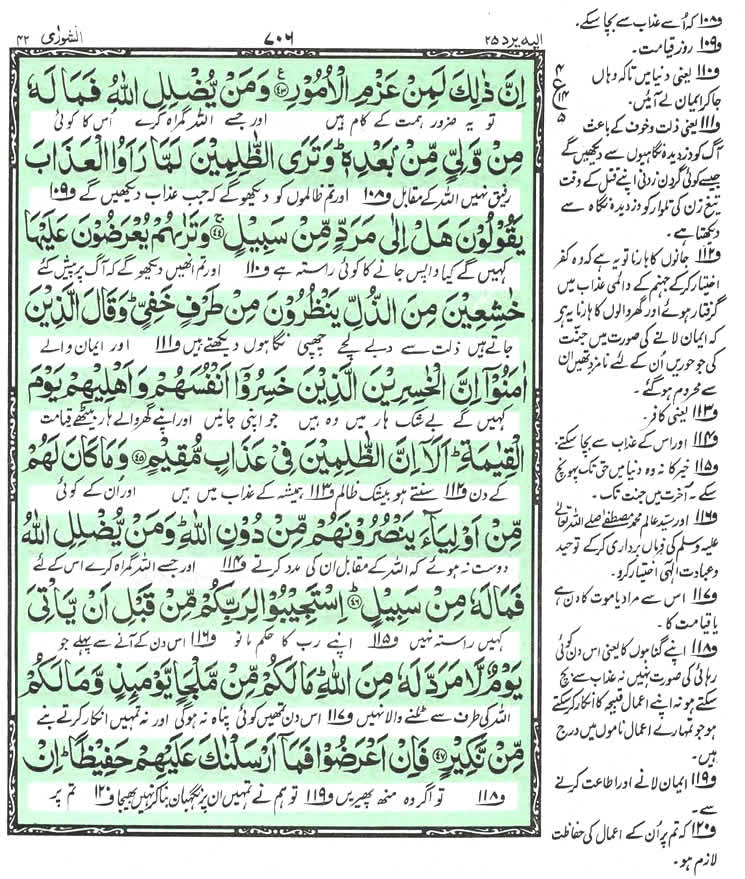 الیہ یرد ۲۵
۷۰۶
الشورٰی ۴۲
اِنَّ ذٰلِكَ لَمِنْ عَزْمِ الْاُمُوْرِ ﴿۴۳﴾ وَمَنْ يُّضْلِلِ اللّٰهُ فَمَا لَهٗ
تو یہ ضرور ہمت کے کام ہیں اور جسے اللہ گمراہ کرے اُس کا کوئی
مِنْ وَّلِيٍّ مِّنْۢ بَعْدِهٖ ؕ وَتَرَى الظّٰلِمِيْنَ لَمَّا رَاَوُا الْعَذَابَ
رفیق نہیں اللہ کے مقابل ف۱۰۸ اور تم ظالموں کو دیکھو گے کہ جب عذاب دیکھیں گے ف۱۰۹
يَقُوْلُوْنَ هَلْ اِلٰى مَرَدٍّ مِّنْ سَبِيْلٍ ﴿۴۴﴾ وَتَرٰىهُمْ يُعْرَضُوْنَ عَلَيْهَا
کہیں گے کیا واپس جانے کا کوئی راستہ ہے ف۱۱۰ اور تم انھیں دیکھو گے کہ آگ پر پیش کئے
خٰشِعِيْنَ مِنَ الذُّلِّ يَنْظُرُوْنَ مِنْ طَرْفٍ خَفِيٍّ ؕ وَقَالَ الَّذِيْنَ
جاتے ہیں ذلت سے دبے لچے چھپی نگاہوں دیکھتے ہیں ف۱۱۱ اور ایمان والے
اٰمَنُوْۤا اِنَّ الْخٰسِرِيْنَ الَّذِيْنَ خَسِرُوْۤا اَنْفُسَهُمْ وَاَهْلِيْهِمْ يَوْمَ
کہیں گے بے شک ہار میں وہ ہیں جو اپنی جانیں اور اپنے گھر والے ہار بیٹھے قیامت
الْقِيٰمَةِ ؕ اَلَاۤ اِنَّ الظّٰلِمِيْنَ فِيْ عَذَابٍ مُّقِيْمٍ ﴿۴۵﴾ وَمَا كَانَ لَهُمْ
کے دن ف۱۱۲ سنتے ہو بیشک ظالم ف۱۱۳ ہمیشہ کے عذاب میں ہیں اور اُن کے کوئی
مِّنْ اَوْلِيَآءَ يَنْصُرُوْنَهُمْ مِّنْ دُوْنِ اللّٰهِ ؕ وَمَنْ يُّضْلِلِ اللّٰهُ
دوست نہ ہوئے کہ اللہ کے مقابل ان کی مدد کرتے ف۱۱۴ اور جسے اللہ گمراہ کرے اس کے لئے
فَمَا لَهٗ مِنْ سَبِيْلٍ ﴿۴۶﴾ اِسْتَجِيْبُوْا لِرَبِّكُمْ مِّنْ قَبْلِ اَنْ يَّاْتِيَ
کہیں راستہ نہیں ف۱۱۵ اپنے رب کا حکم مانو ف۱۱۶ اس دن کے آنے سے پہلے جو
يَوْمٌ لَّا مَرَدَّ لَهٗ مِنَ اللّٰهِ ؕ مَا لَكُمْ مِّنْ مَّلْجَاٍ يَّوْمَئِذٍ وَّمَا لَكُمْ
اللہ کی طرف سے ٹلنے والا نہیں ف۱۱۷ اس دن تمھیں کوئی پناہ نہ ہوگی اور نہ تمہیں انکار کرتے بنے
مِّنْ نَّكِيْرٍ ﴿۴۷﴾ فَاِنْ اَعْرَضُوْا فَمَاۤ اَرْسَلْنٰكَ عَلَيْهِمْ حَفِيْظًا ؕ اِنْ
ف۱۱۸ تو اگر وہ منھ پھیریں ف۱۱۹ تو ہم نے تمہیں ان پر نگہبان بنا کر نہیں بھیجا ف۱۲۰ تم پر
ف۱۰۸ کہ اُسے عذاب سے بچا سکے۔
ف۱۰۹ روز قیامت۔
ف۱۱۰ یعنی دنیا میں تاکہ وہاں
جا کر ایمان لے آئیں۔
ف۱۱۱ یعنی ذلت و خوف کے باعث
آگ کو دزدیدہ نگاہوں سے دیکھیں گے
جیسے کوئی گردن زدنی اپنے قتل کے وقت
تیغ زن کی تلوار کو دزدیدہ نگاہ سے
دیکھتا ہے۔
ف۱۱۲ جانوں کا ہارنا تو یہ ہے کہ وہ کفر
اختیار کر کے جہنم کے دائمی عذاب میں
گرفتار ہوئے اور گھر والوں کا ہارنا یہ ہے
کہ ایمان لانے کی صورت میں جنّت
کی جو حوریں اُن کے لئے نامزد تھیں ان
سے محروم ہو گئے۔
ف۱۱۳ یعنی کافر۔
ف۱۱۴ اور اس کے عذاب سے بچا سکتے
ف۱۱۵ خیر کا نہ وہ دنیا میں حق تک پہونچ
سکے۔ آخرت میں جنت تک۔
ف۱۱۶ اور سیّد عالم محمد مصطفےٰ صلے اللہ تعالٰی
علیہ وسلم کی فرماں برداری کر کے توحید
و عبادت الٰہی اختیار کرو۔
ف۱۱۷ اس سے مراد یا موت کا دن ہے
یا قیامت کا۔
ف۱۱۸ اپنے گناہوں کا یعنی اس دن کوئی
رہائی کی صورت نہیں نہ عذاب سے بچ
سکتے ہو نہ اپنے اعمال قبیحہ کا انکار کر سکتے
ہو جو تمہارے اعمال ناموں میں درج
ہیں۔
ف۱۱۹ ایمان لانے اور اطاعت کرنے
سے۔
ف۱۲۰ کہ تم پر اُن کے اعمال کی حفاظت
لازم ہو۔
۴
ع
۱۴
۵